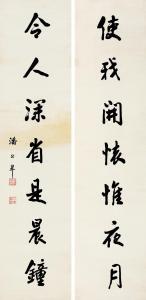 使我開懷惟夜月
令人深省是晨鐘
潘公